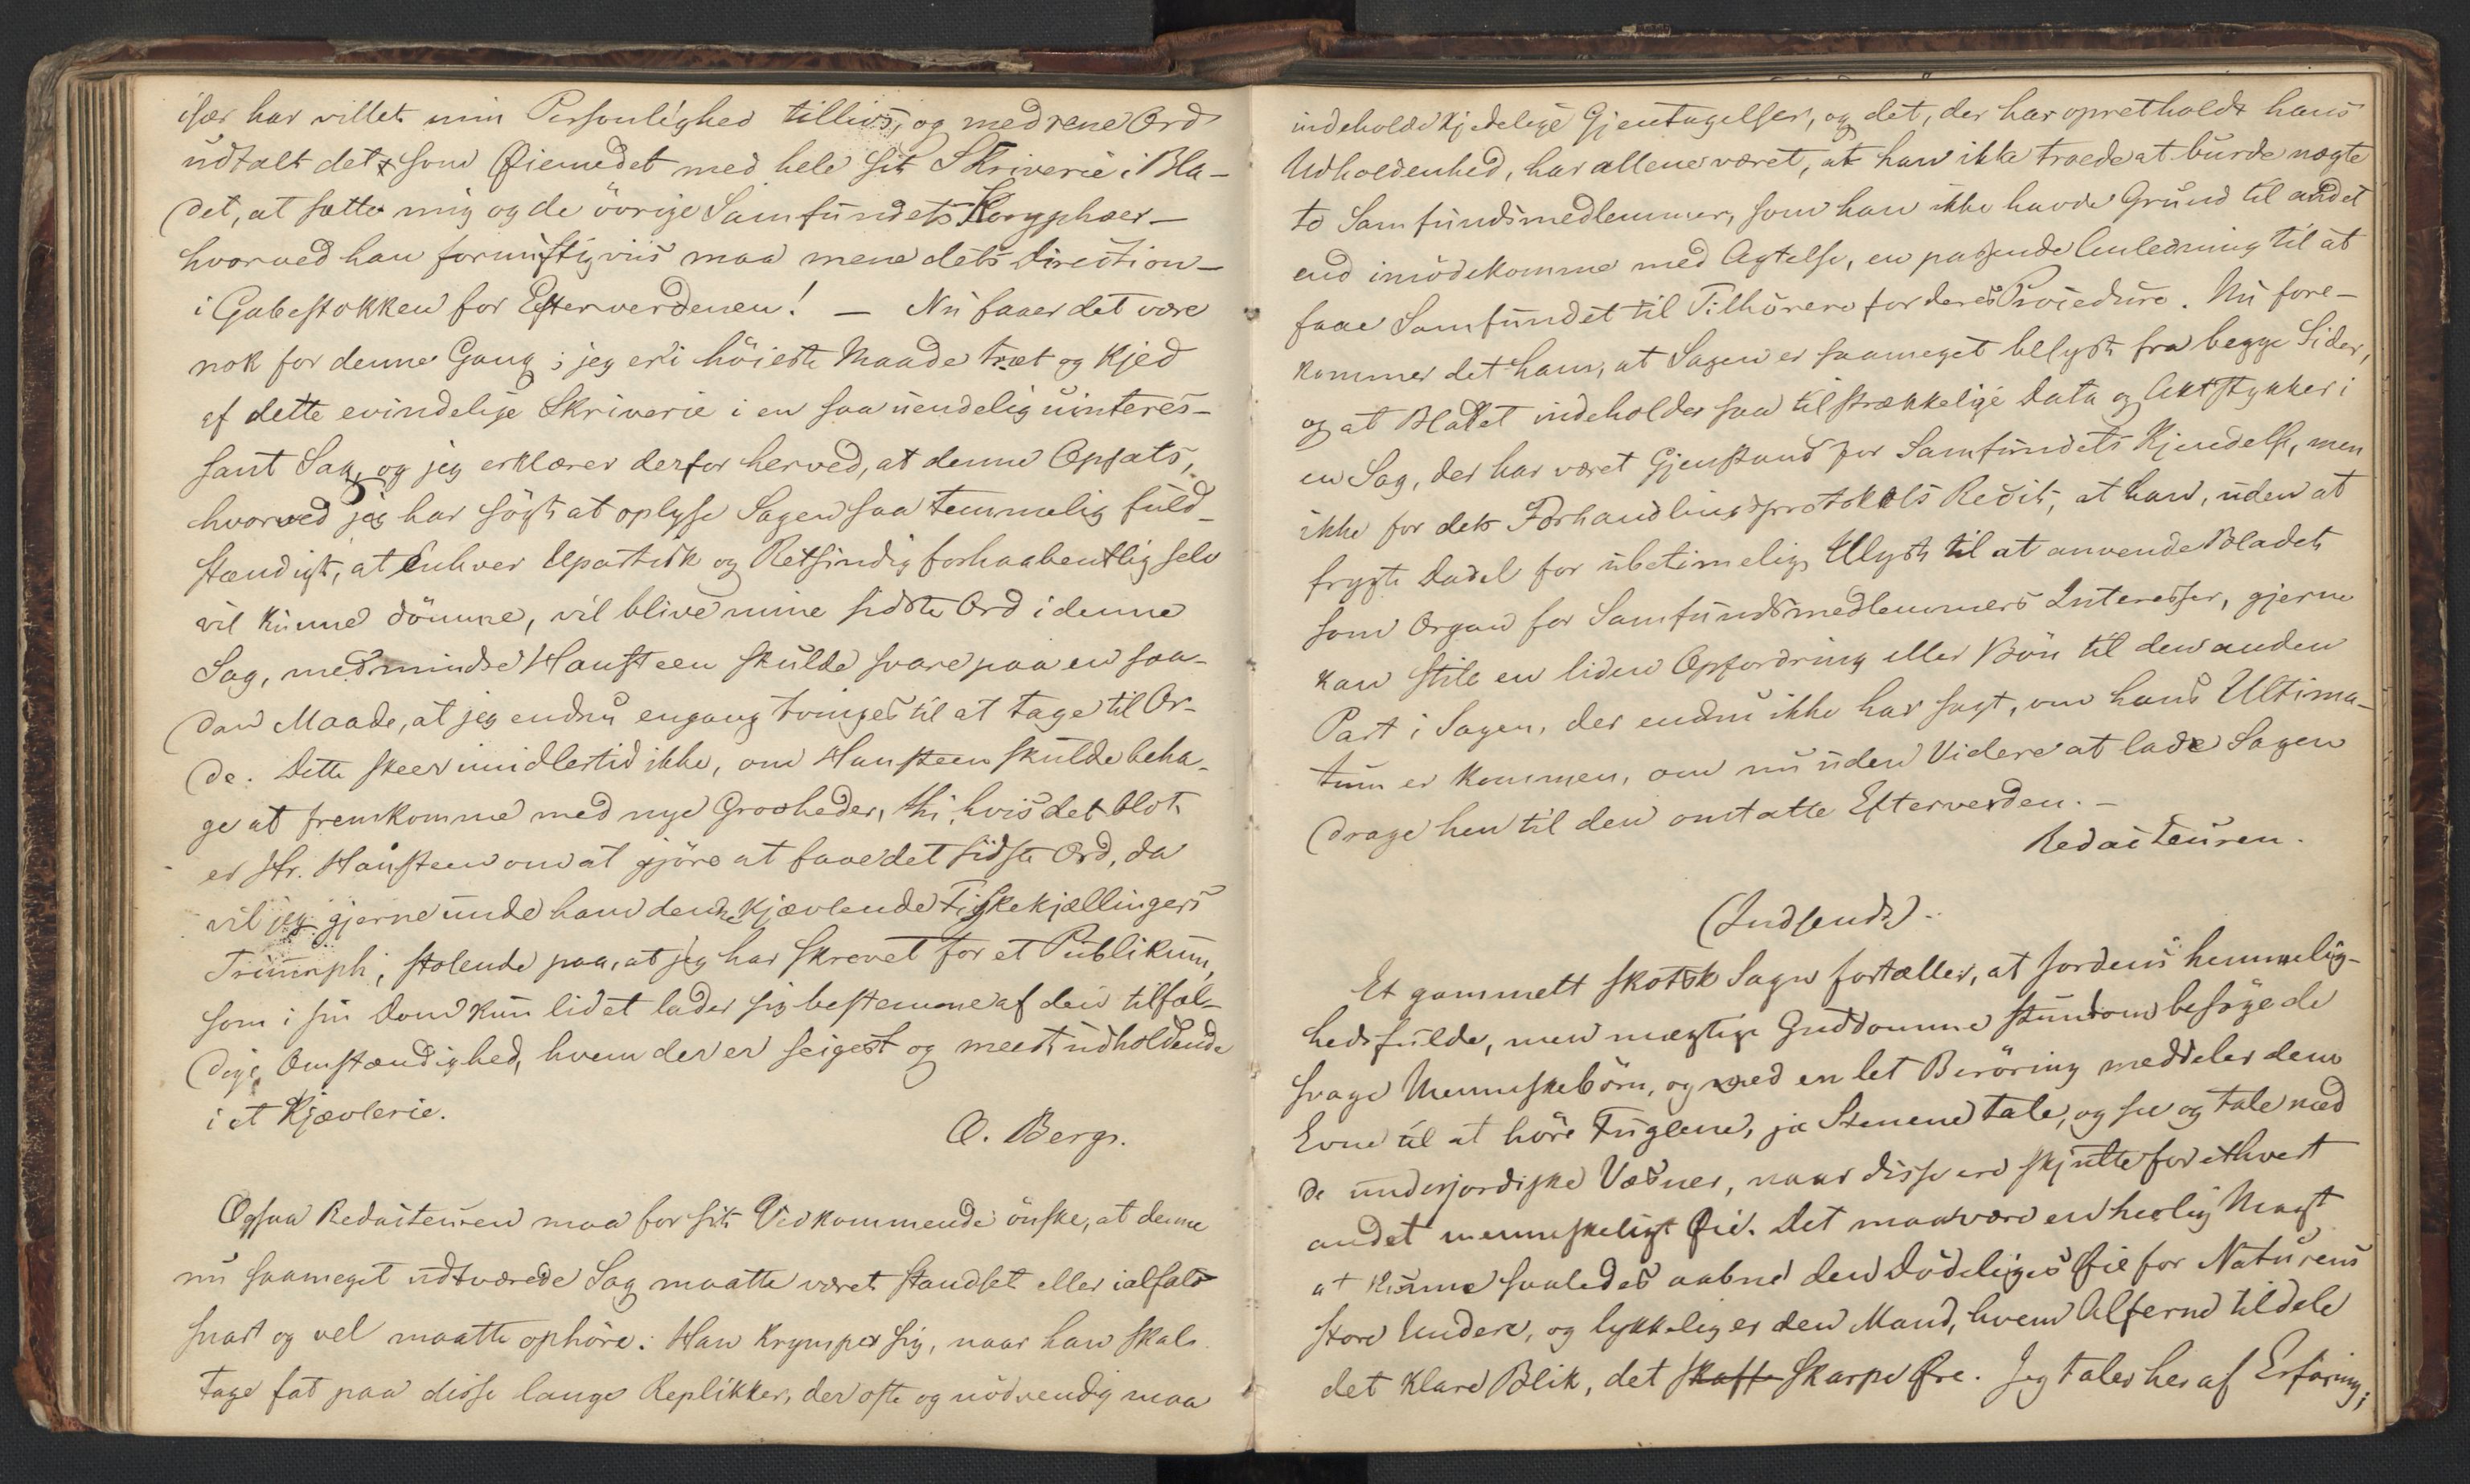 især har villet min Personlighed tillivs, og med rene Ord
udtalt det som Øiemedet med hele sit Skriverie i Bla-
det, at sætte mig og de övrige Samfundets Koryphæer -
hvorved han fornuftigviis maa mene dets Direction -
i Gabestokken for Efterverdenen! — Nu faaer det være
nok for denne Gang; jeg er i höieste Maade træt og kjed
af dette evindelige Skriverie i en saa uendelig uinteres-
sant Sag, og jeg erklærer derfor herved, at denne Opsats,
hvorved jeg har sögt at oplyse Sagen saa temmelig fuld-
stændigt, at Enhver Upartisk og Retsindig forhaabentlig selv
vil kunne dömme, vil blive mine sidste Ord i denne
Sag, medmindre Hansteen skulde svare paa en saa-
dan Maade, at jeg endnu engang tvinges til at tage til Or-
de. Dette skeer imidlertid ikke, om Hansteen skulde beha-
ge at fremkomme med nye Grovheder, thi, hvis det blot
er Hr. Hansteen om at gjöre at faae det sidste Ord, da
vil jeg gjerne unde ham denne kjævlende Fiskekjællingers
Triumph, stolende paa, at jeg har skrevet for et Publikum,
som i sin Dom kun lidet lader sig bestemme af den tilfæl-
dige Omstændighed, hvem der er seigest og meest udholdende
i et Kjævlerie.
O. Berg.
Ogsaa Redacteuren maa for sit Vedkommende önske, at denne
nu saameget udtværede Sag maatte været standset eller ialfald
snart og vel maatte ophöre. Han krymper sig, naar han skal
tage fat paa disse lange Replikker, der ofte og nödvendig maa
indeholde kjedelige Gjentagelser, og det, der har opretholdt hans
Udholdenhed, har allene været, at han ikke troede at burde nægte
to Samfundsmedlemmer, som han ikke havde Grund til andet
end imödekomme med Agtelse, en passende Anledning til at
faae Samfundet til Tilhörere for deres Procedure. Nu fore-
kommer det ham, at Sagen er saameget belyst fra begge Sider,
og at Bladet indeholder saa tilstrækkelige Data og Aktstykker i
en Sag, der har været Gjenstand for Samfundets Kjendelse, men
ikke for dets Forhandlingsprotokols Recit, at han, uden at
frygte Dadel for ubetimelig Ulyst til at anvende Bladet
som Organ for Samfundsmedlemmers Interesser, gjerne
kan stile en liden Opfordring eller Bön til den anden
Part i Sagen, der endnu ikke har sagt, om hans Ultima-
tum er kommen, om nu uden Videre at lade Sagen
drage hen til den omtalte Efterverden. -
Redacteuren.
(Indsendt).
Et gammelt skotsk Sagn fortæller, at Jordens hemmelig-
hedsfulde, men mægtige Guddomme stundom besöge de
svage Menneskebörn, og med en let Beröring meddeler dem
Evne til at höre Fuglene, ja Stenene tale, og see og tale med
de underjordiske Væsner, naar disse ere skjulte for ethvert
andet menneskeligt Øie. Det maa være en herlig Magt
at kunne saaledes aabne den Dödeliges Øie for Naturens
store Undere, og lykkelig er den Mand, hvem Alferne tildele
det klare Blik, det skaffe skarpe Øre. Jeg taler her af Erfaring;